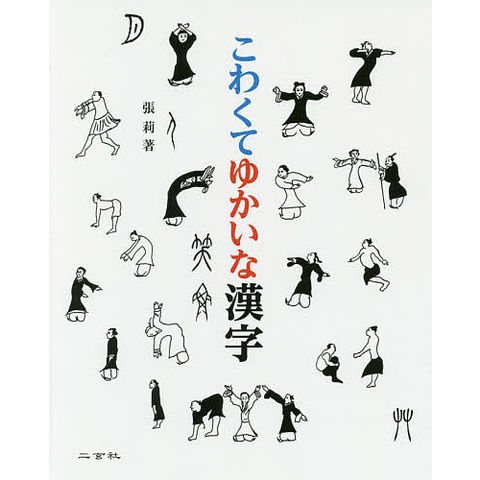 こわくてゆかいな漢字
張莉著
二玄社